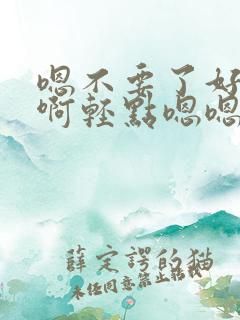 嗯不要了好
啊轻點嗯嗯
薛定諤的猫
未任同意禁止転載